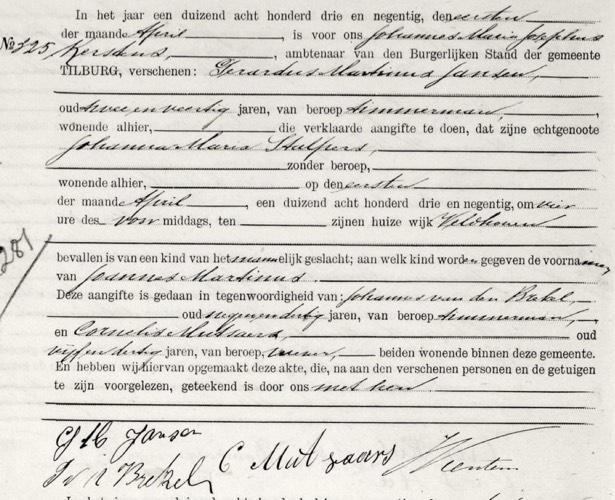 In het jaar een duizend acht honderd drie en negentig, den eersten
der maand April, is voor ons Johannes Maria Josephus
No. 325 Kersens, ambtenaar van den Burgerlijken Stand der gemeente
TILBURG, verschenen: Gerardus Martinus Jansen,
oud twee en veertig jaren, van beroep timmerman,
wonende alhier, die verklaarde aangifte te doen, dat zijne echtgenoote
Johanna Maria Stulpers,
zonder beroep,
wonende alhier, op den eersten
der maand April, een duizend acht honderd drie en negentig, om vier
ure des voor middags, ten zijnen huize wijk Veldhoven
281
bevallen is van een kind van het mannelijk geslacht; aan welk kind worden gegeven de voornamen
van Joannes Martinus.
Deze aangifte is gedaan in tegenwoordigheid van: Johannes van den Brekel,
oud negen en dertig jaren, van beroep timmerman,
en Cornelis Mutsaers, oud
vijf en dertig jaren, van beroep, wever, beiden wonende binnen deze gemeente.
En hebben wij hiervan opgemaakt deze akte, die, na aan den verschenen personen en de getuigen
te zijn voorgelezen, geteekend is door ons met hen
Jansen
Brekel C Mutsaars